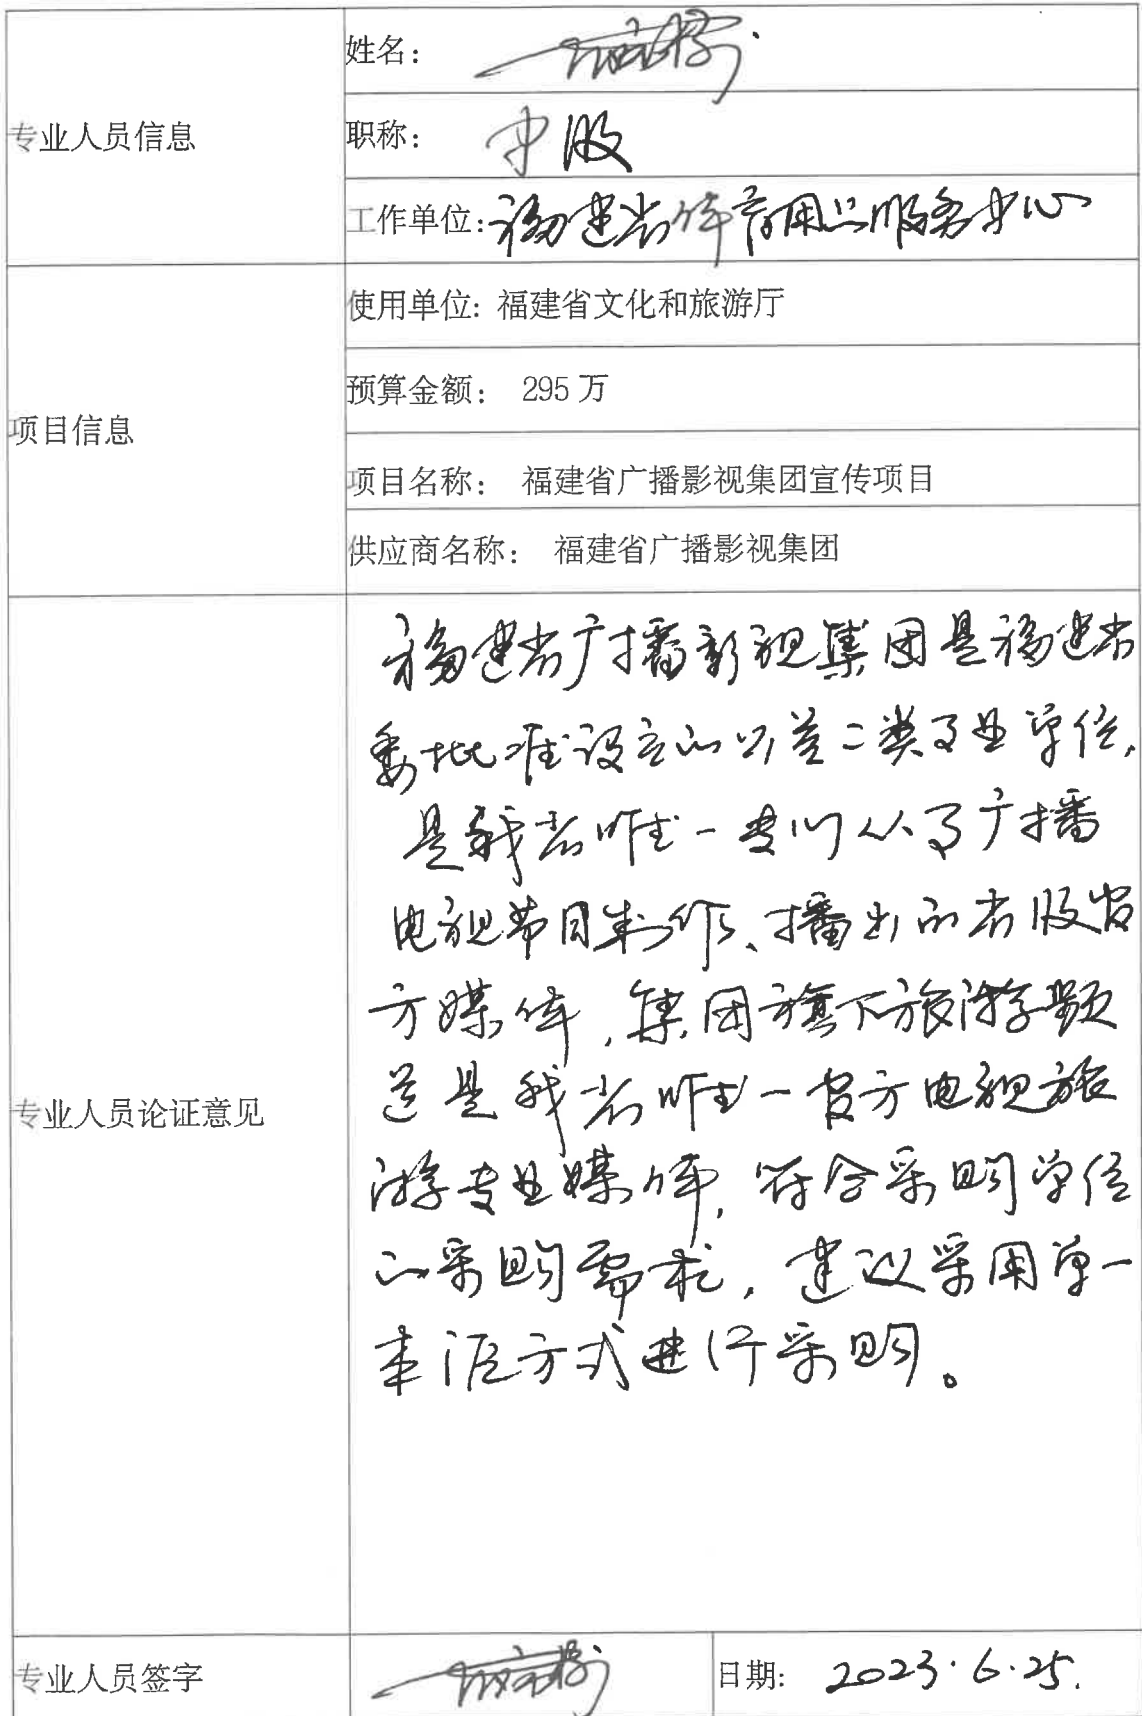 专业人员信息
姓名：
职称： 中级
工作单位: 福建省体育用品服务中心
项目信息
使用单位: 福建省文化和旅游厅
预算金额： 295 万
项目名称： 福建省广播影视集团宣传项目
供应商名称： 福建省广播影视集团
专业人员论证意见
福建省广播影视集团是福建省
委批准设立的公益二类事业单位，
是我省唯一专门从事广播
电视节目制作、播出的省级官
方媒体，集团旗下旅游频
道是我省唯一官方电视旅
游专业媒体，符合采购单位
的采购需求，建议采用单一
来源方式进行采购。
专业人员签字
日期: 2023.6.25.